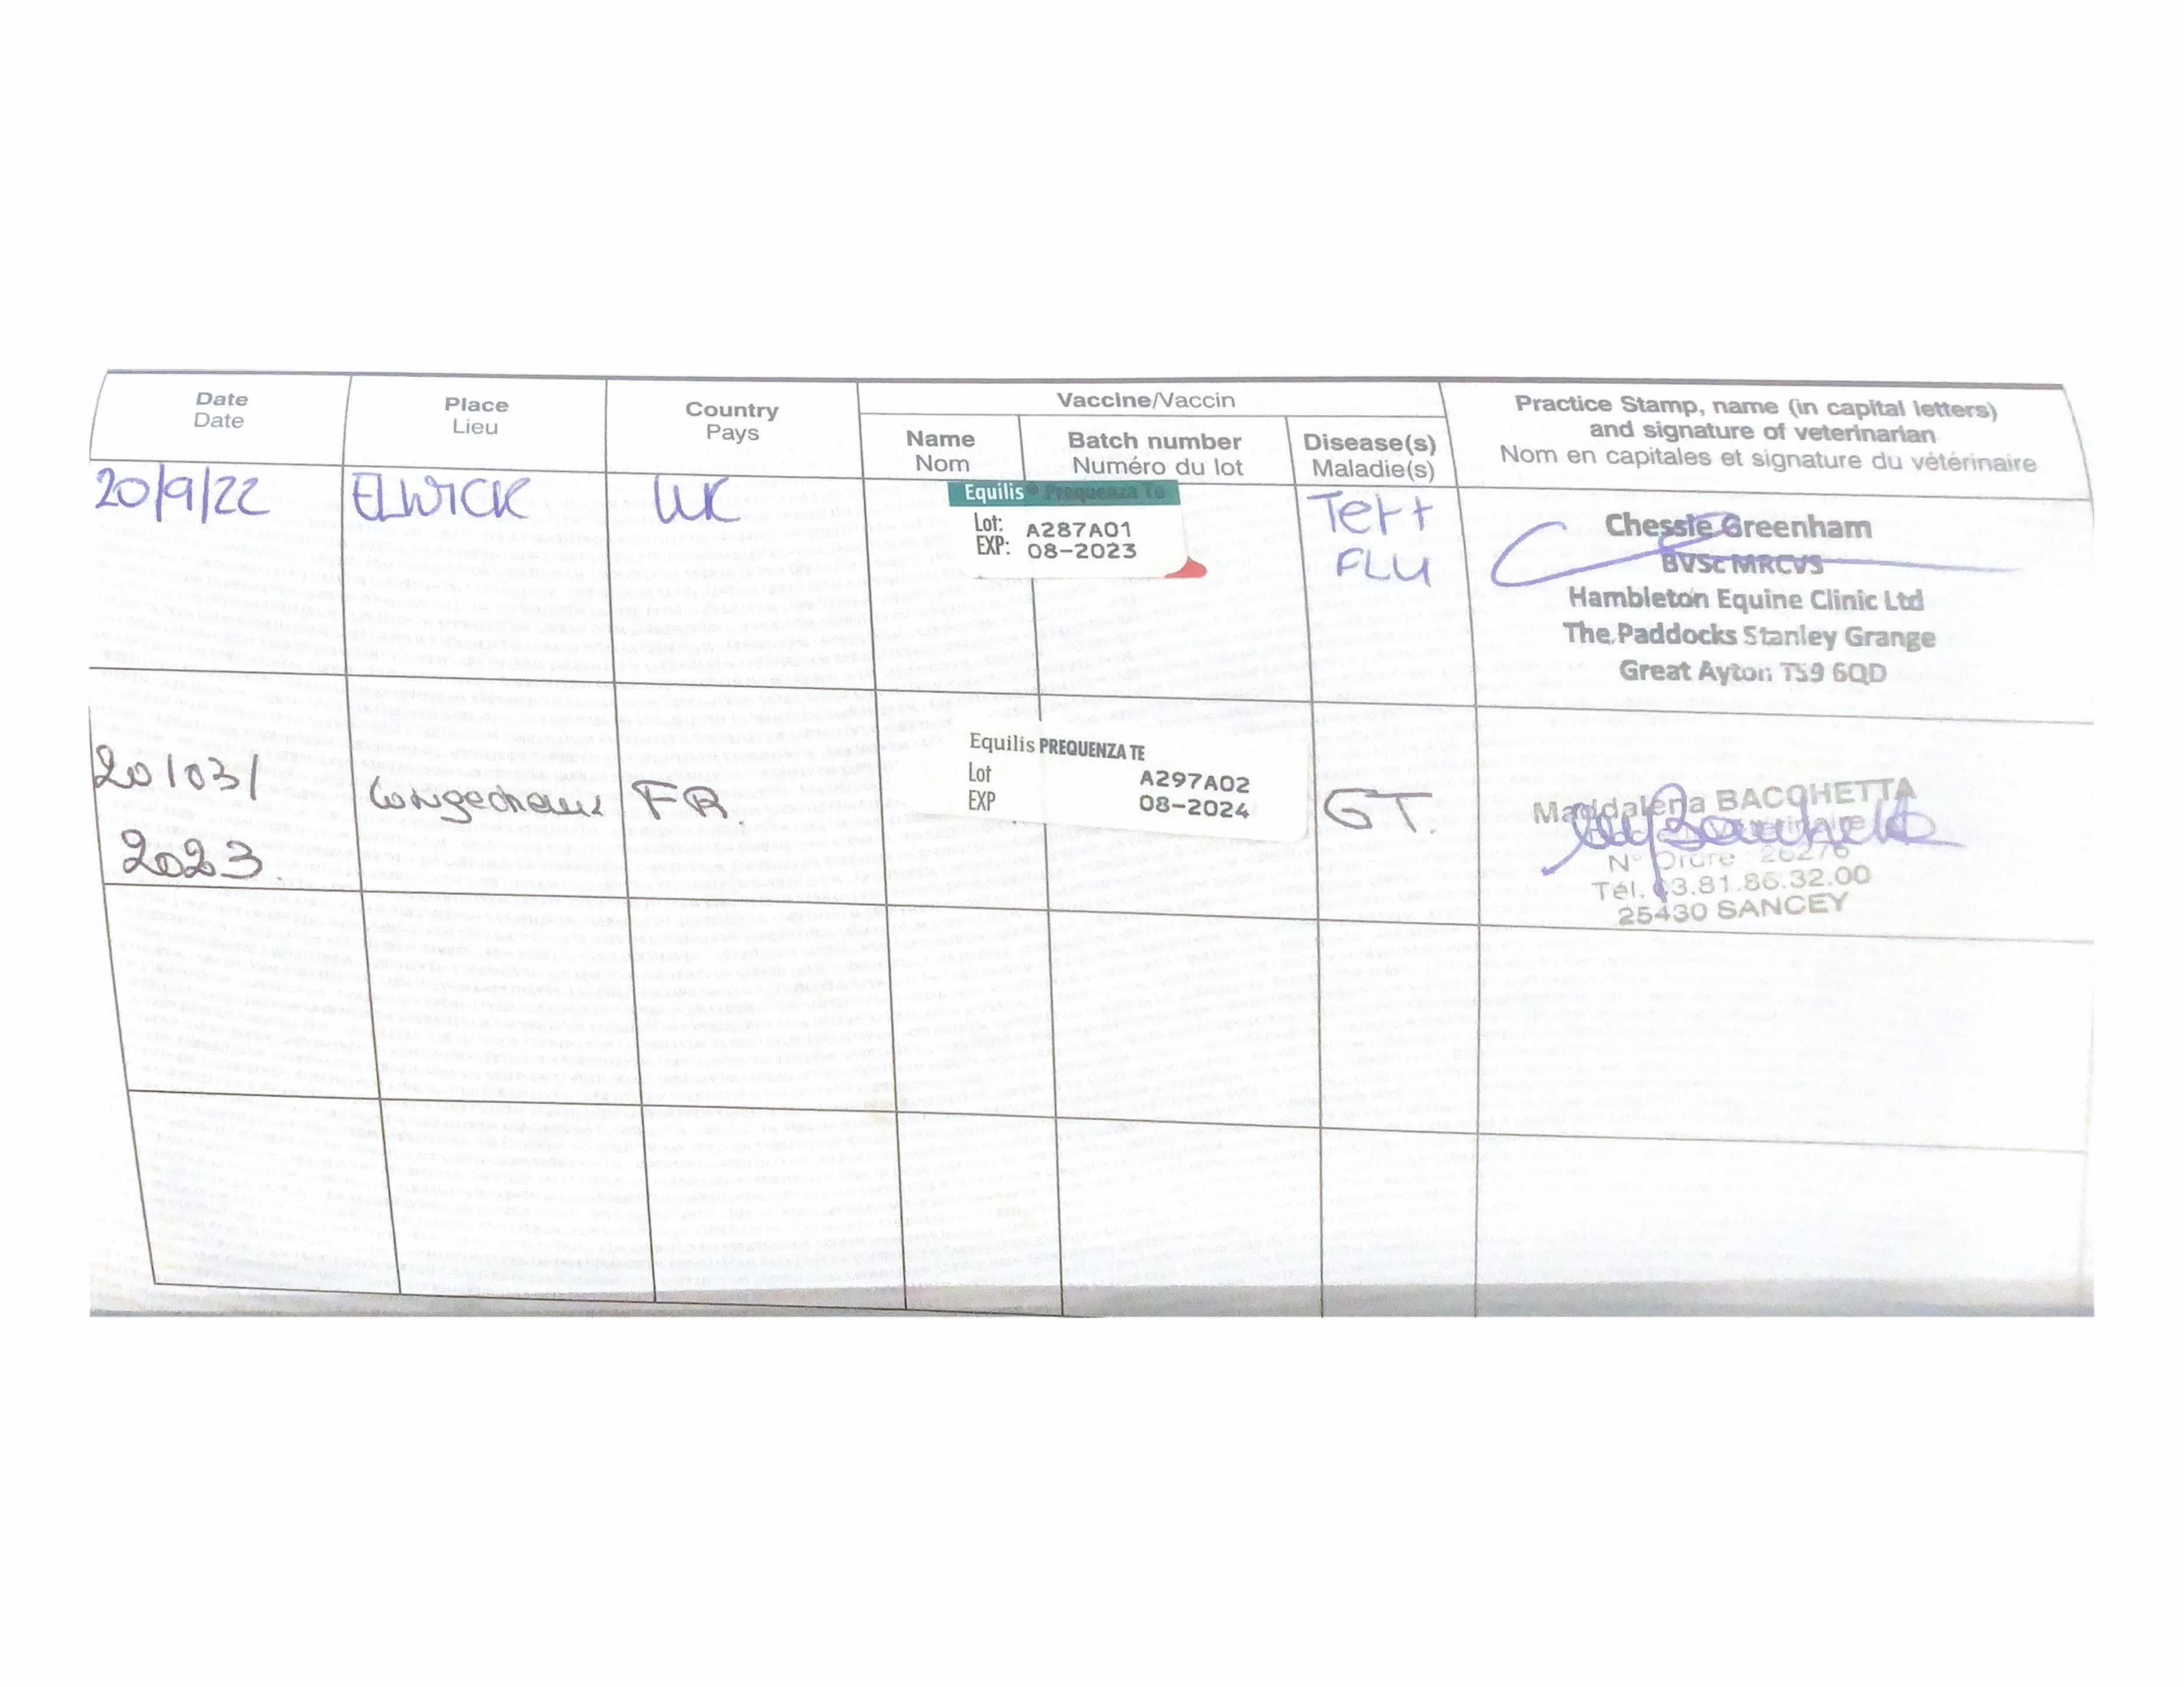 Date
Date
Place
Lieu
Country
Pays
Vaccine/Vaccin
Name
Nom
Batch number
Numéro du lot
Disease(s)
Maladie(s)
Practice Stamp, name (in capital letters)
and signature of veterinarian
Nom en capitales et signature du vétérinaire
20/9/22
ELWICK
UK
Equilis® Prequenza Te
Lot: A287A01
EXP: 08-2023
Tet +
FLU
Chessie Greenham
BVSc MRCVS
Hambleton Equine Clinic Ltd
The Paddocks Stanley Grange
Great Ayton TS9 6QD
20/03/
2023.
FR.
Equilis PREQUENZA TE
Lot A297A02
EXP 08-2024
GT.
Maddalena BACCHETTA
N° Ordre 26276
Tél. 03.81.86.32.00
25430 SANCEY